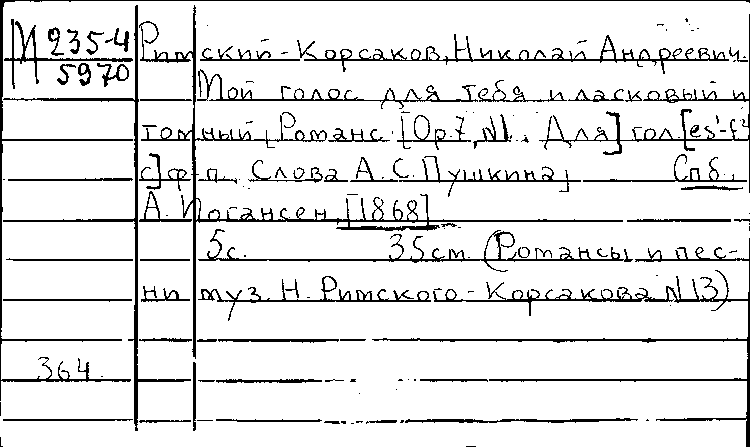 М 235-4
5970
Римский-Корсаков, Николай Андреевич.
Мой голос для тебя и ласковый и
томный [Романс [Op.7, N1. Для] гол [es'-f²
с] ф-п. Слова А.С. Пушкина] Спб.,
А. Иогансен, [1868]
5с. 35см. (Романсы и пес-
ни муз. Н. Римского-Корсакова N 13)
364